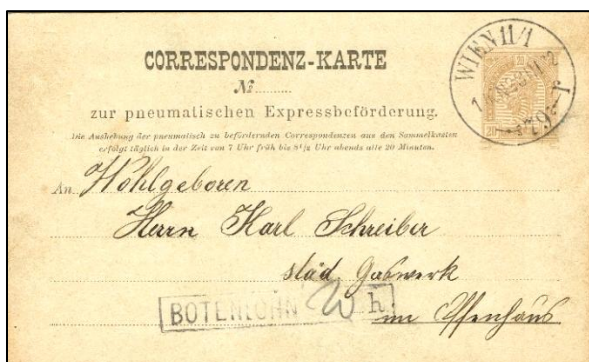 CORRESPONDENZ-KARTE
№
zur pneumatischen Expressbeförderung.
Die Aushebung der pneumatisch zu befördernden Correspondenzen aus den Sammelkasten
erfolgt täglich in der Zeit von 7 Uhr früh bis 8½ Uhr abends alle 20 Minuten.
WIEN 11/1
20
An Wohlgeboren
Herrn Karl Schreiber
städ. Gaswerk
BOTENLOHN 20 h
im Ofenhaus